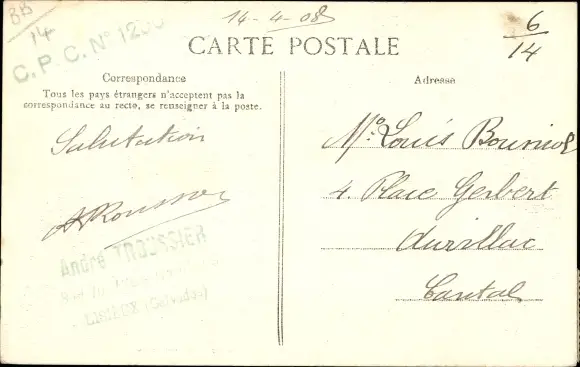 BB
14
14-4-08
6
14
C.P.C. N°
CARTE POSTALE
Correspondance
Tous les pays étrangers n'acceptent pas la
correspondance au recto, se renseigner à la poste.
Adresse
Salutation
Mr. Louis Bouniol
4 Place Gerbert
Aurillac
Cantal
André TROUSSIER
LISIEUX (Calvados)